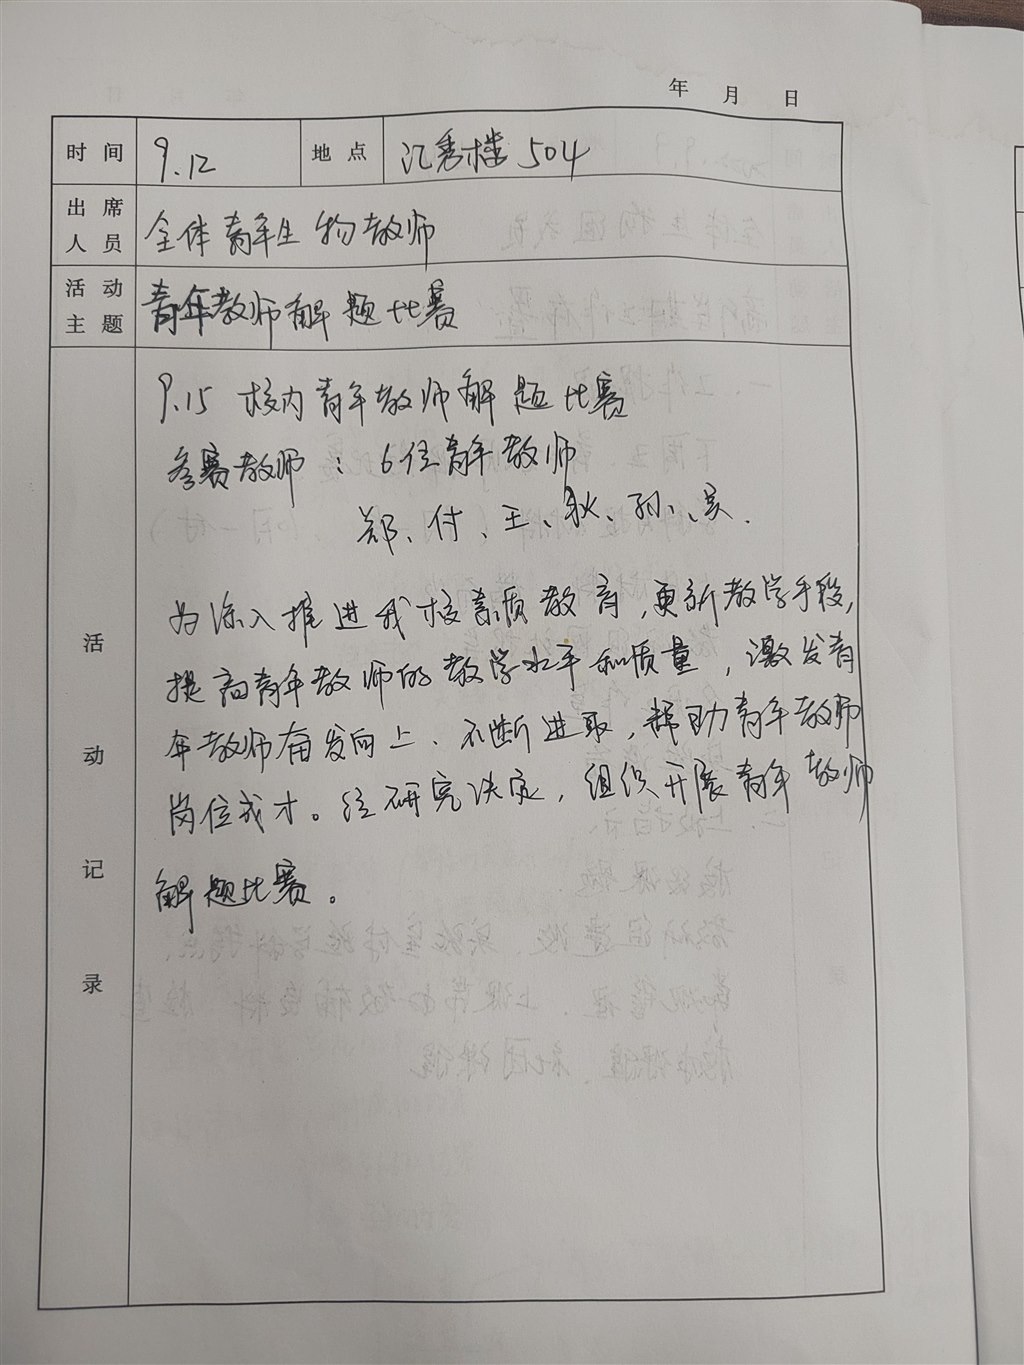 年 月 日
时 间 9.12 地 点 汇秀楼 504
出 席
人 员 全体青年生物教师
活 动
主 题 青年教师解题比赛
9.15 校内青年教师解题比赛
参赛教师 : 6位青年教师
郑、付、王、狄、孙、吴.
为深入推进我校素质教育,更新教学手段,
提高青年教师的教学水平和质量,激发青
年教师奋发向上、不断进取,帮助青年教师
岗位成才。经研究决定,组织开展青年教师
解题比赛。
活
动
记
录